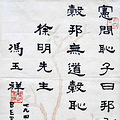 憲問恥子曰邦
穀邦無道穀恥
徐明先生
馮玉祥